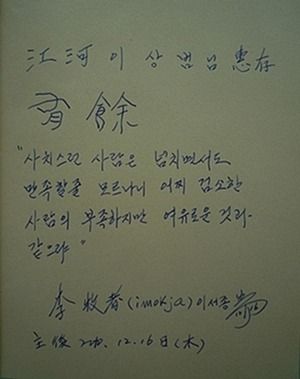 江河 이 상 범 님 惠存
有餘
"사치스런 사람은 넘치면서도
만족할줄 모르나니 어찌 검소한
사람의 부족하지만 여유로운 것과
같으랴"
李牧者(imokja)이서종
主後 12.16日(木)